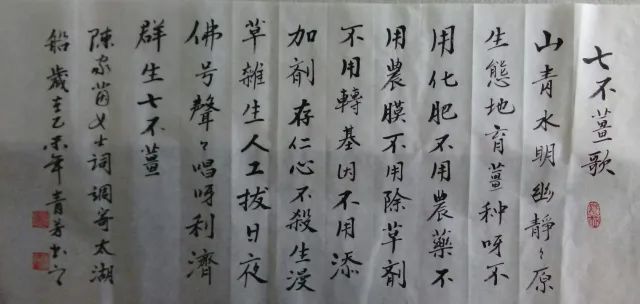 七不薑歌
山青水明幽靜〻原
生態地育薑种呀不
用化肥不用農藥不
用農膜不用除草劑
不用轉基因不用添
加劑存仁心不殺生漫
草雜生人工拔日夜
佛号聲〻唱呀利濟
群生七不薑
陳家茵女士詞調寄太湖
船歲在乙未年青芳書